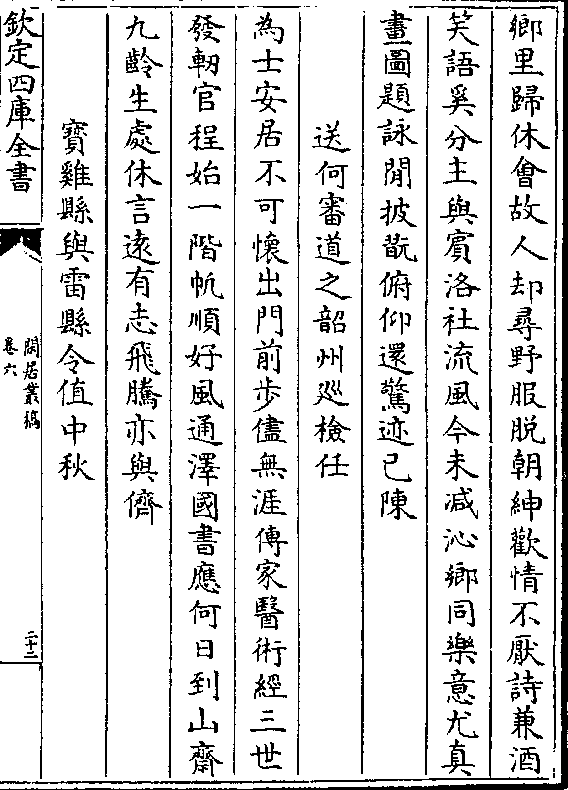 鄉里歸休會故人却尋野服脱朝紳歡情不厭詩兼酒
笑語奚分主與賓洛社流風今未减沁鄉同樂意尤真
畫圖題詠閒披翫俯仰還驚迹已陳
送何審道之韶州廵檢任
為士安居不可懷出門前歩儘無涯傳家醫術經三世
發軔官程始一階帆順好風通澤國書應何日到山齋
九齡生處休言逺有志飛騰亦與儕
寶雞縣與雷縣令值中秋
欽定四庫全書
閒居叢稿
卷六
二十二